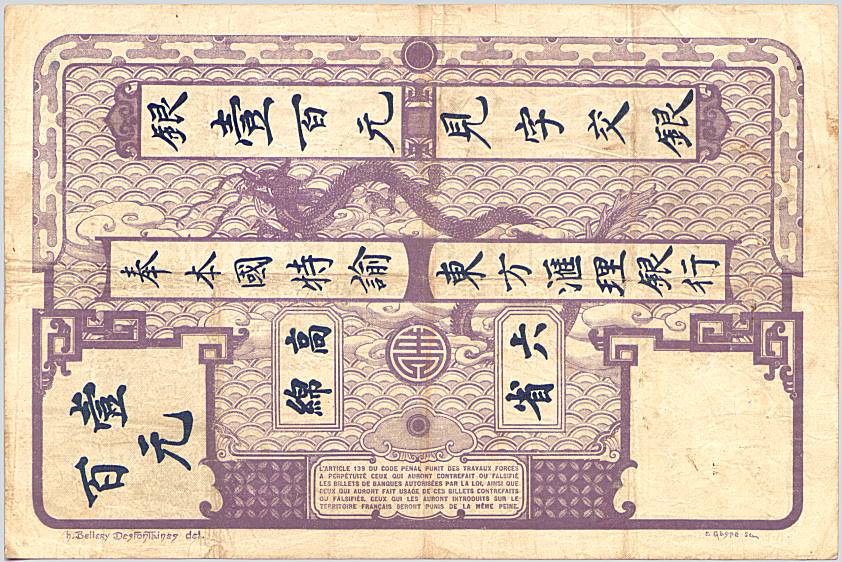 銀壹百元 見字交銀
奉本國特諭 東方滙理銀行
高綿
六省
壹百元
L'ARTICLE 139 DU CODE PÉNAL PUNIT DES TRAVAUX FORCÉS
À PERPÉTUITÉ CEUX QUI AURONT CONTREFAIT OU FALSIFIÉ
LES BILLETS DE BANQUES AUTORISÉES PAR LA LOI, AINSI QUE
CEUX QUI AURONT FAIT USAGE DE CES BILLETS CONTREFAITS
OU FALSIFIÉS. CEUX QUI LES AURONT INTRODUITS SUR LE
TERRITOIRE FRANÇAIS SERONT PUNIS DE LA MÊME PEINE.
h. Bellery Desfontaines del.